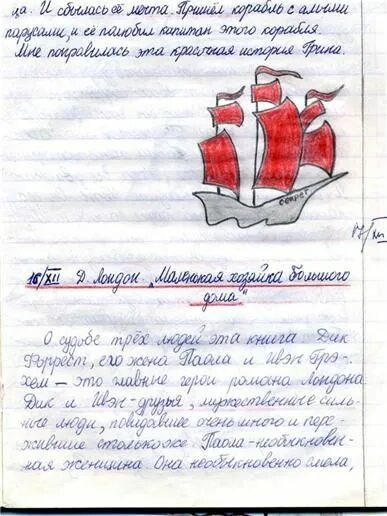 ца. И сбылась её мечта. Пришёл корабль с алыми
парусами, и её полюбил капитан этого корабля.
Мне понравилась эта красочная история Грина.
секрет
17/XII
16/XII Д. Лондон. „Маленькая хозяйка большого
дома"
О судьбе трёх людей эта книга. Дик
Форрест, его жена Паола и Ивэн Грэ-
хем – это главные герои романа Лондона.
Дик и Ивэн-друзья, мужественные силь-
ные люди, повидавшее очень много и пере-
жившие столько же. Паола-необыкновен-
ная женщина. Она необыкновенно смела,